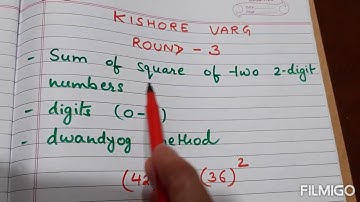 KISHORE VARG
ROUND - 3
- Sum of square of two 2-digit
numbers
- digits (0-
- dwandyog method
(42 (36)²
FILMIGO